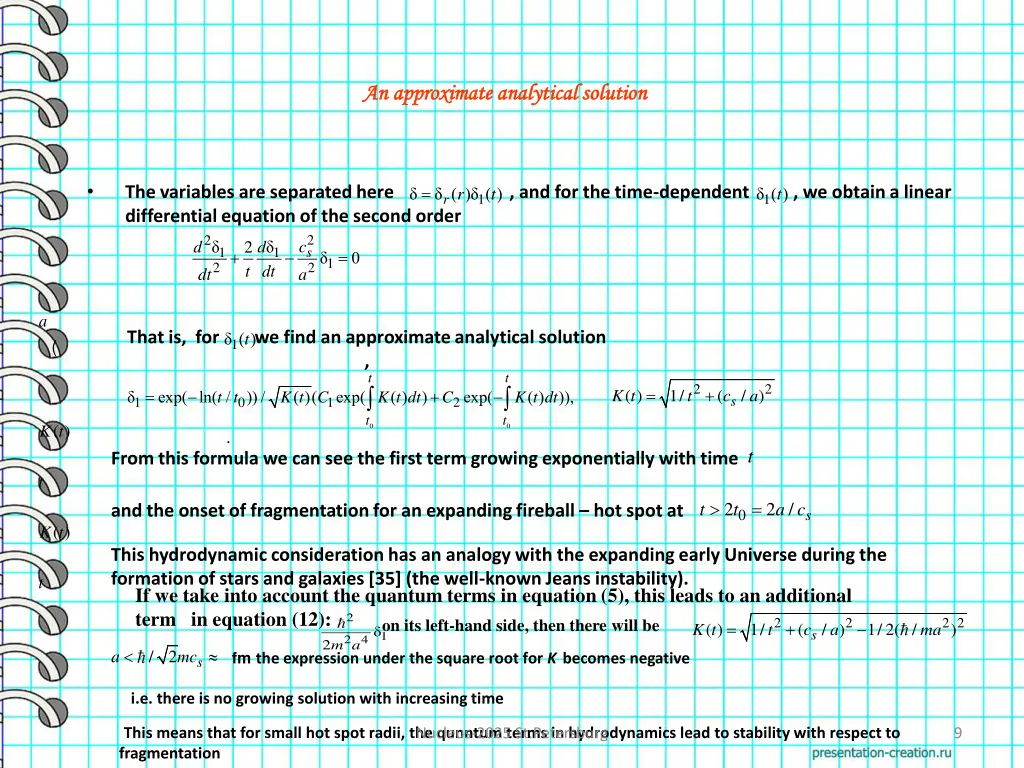 An approximate analytical solution
• The variables are separated here δ = δ_r(r)δ₁(t) , and for the time-dependent δ₁(t) , we obtain a linear
differential equation of the second order
d²δ₁/dt² + 2/t dδ₁/dt − c_s²/a² δ₁ = 0
a
That is, for δ₁(t) we find an approximate analytical solution
,
δ₁ = exp(− ln(t / t₀)) / √K(t) (C₁ exp(∫_{t₀}^{t} K(t)dt) + C₂ exp(−∫_{t₀}^{t} K(t)dt)), K(t) = √(1/ t² + (c_s / a)²)
K(t)
.
From this formula we can see the first term growing exponentially with time t
and the onset of fragmentation for an expanding fireball – hot spot at t > 2t₀ = 2a / c_s
K(t)
This hydrodynamic consideration has an analogy with the expanding early Universe during the
formation of stars and galaxies [35] (the well-known Jeans instability).
If we take into account the quantum terms in equation (5), this leads to an additional
term in equation (12): ħ²/2m²a⁴ δ₁ on its left-hand side, then there will be K(t) = √(1/ t² + (c_s / a)² − 1/ 2(ħ / ma²)²)
a < ħ / √2mc_s ≈ fm the expression under the square root for K becomes negative
i.e. there is no growing solution with increasing time
This means that for small hot spot radii, the quantum terms in hydrodynamics lead to stability with respect to
fragmentation
9
presentation-creation.ru